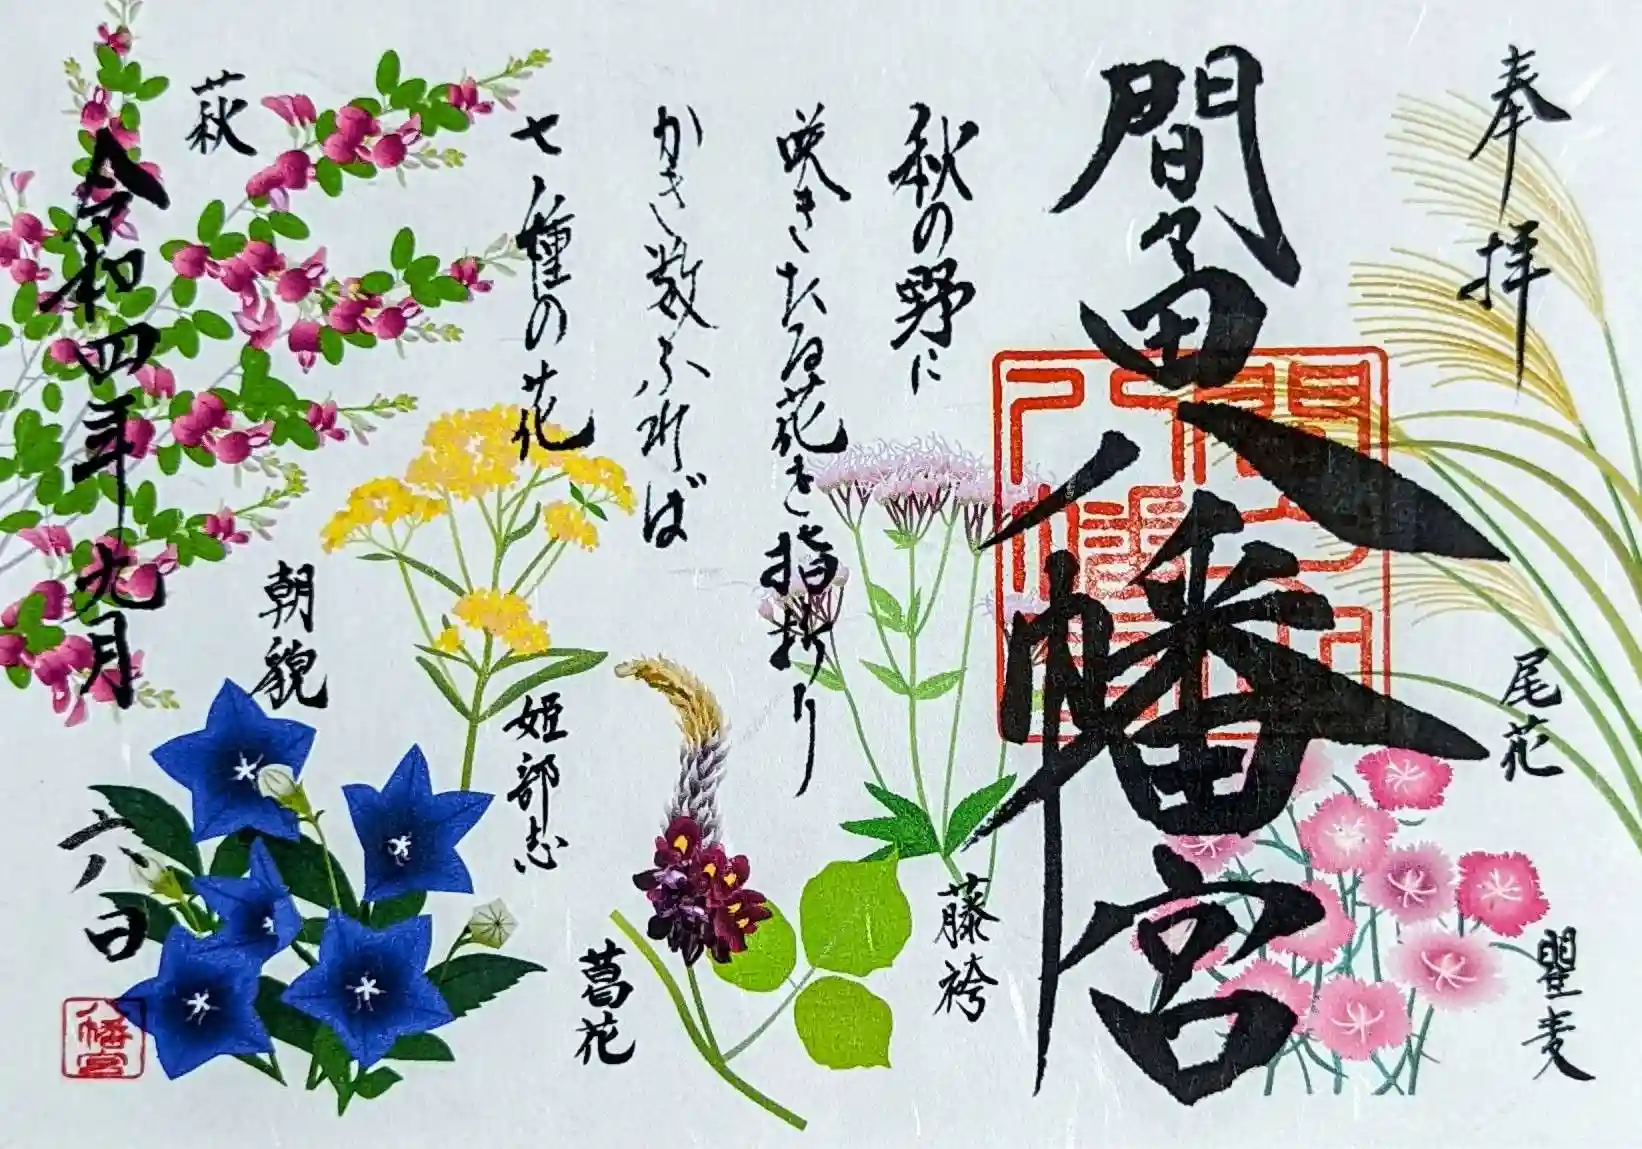 奉拝
尾花
瞿麦
間々田八幡宮
秋の野に
咲きたる花を指折り
かき数ふれば
七種の花
藤袴
葛花
姫部志
朝貌
萩
令和四年九月
六日
八幡宮